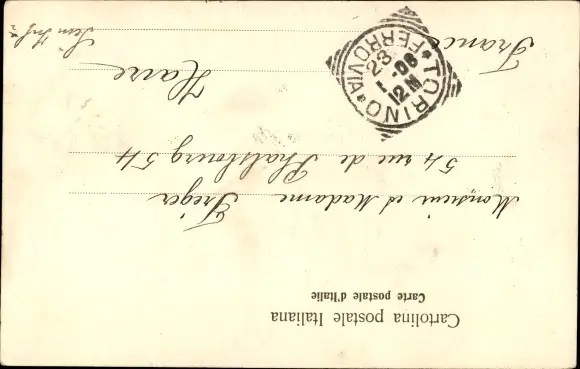 Cartolina postale Italiana
Carte postale d'Italie
Monsieur et Madame Fréger
54 rue de Phalsbourg 54
Havre
France
TORINO FERROVIA
23
-06
12M